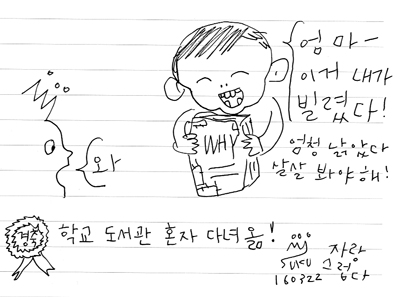 엄마-
이거 내가
빌렸다!
엄청 낡았다
살살 봐야해!
WHY
와
경축
학교 도서관 혼자 다녀옴!
자라
그렸다
160322